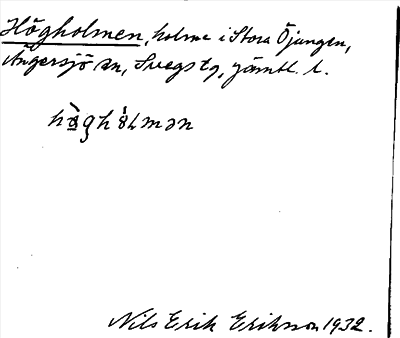 Högholmen, holme i Stora Öjungen,
Ängersjö sn, Svegs tg, Jämtl. l.
Nils Erik Eriksson 1932.